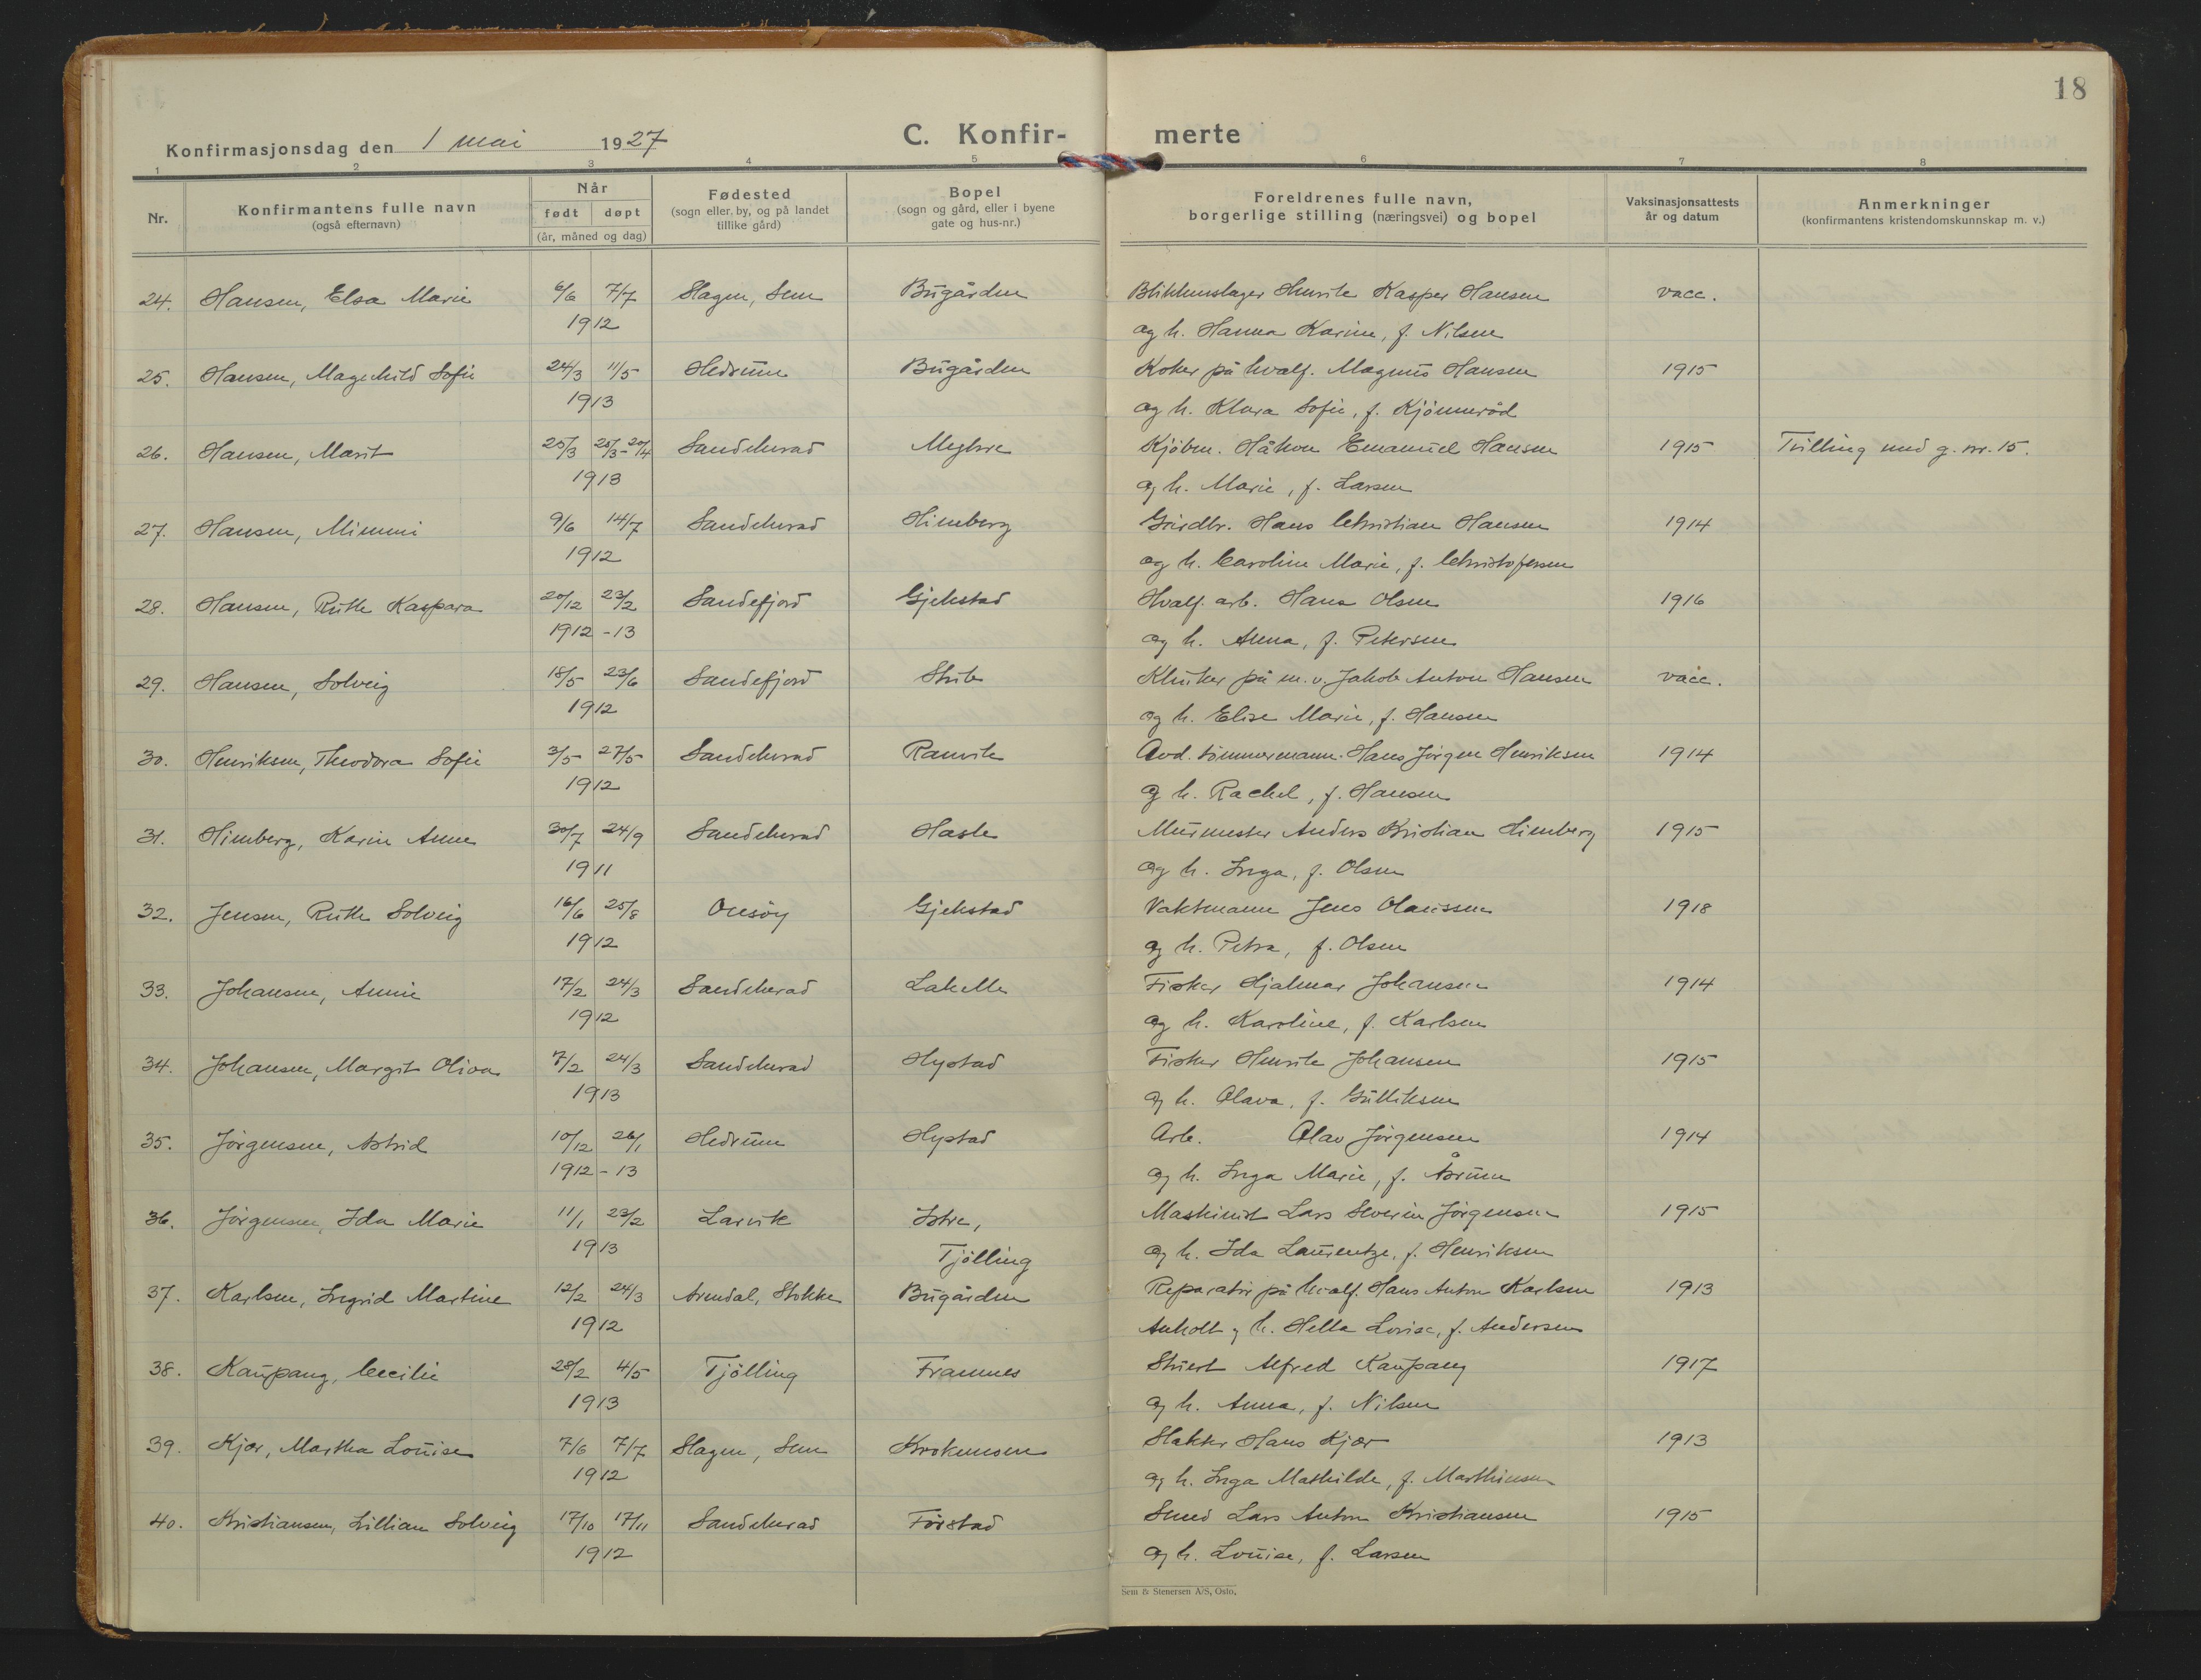 18
Konfirmasjonsdag den 1 mai 1927 C. Konfir- merte
1 2 3 4 5 6 7 8
Nr. Konfirmantens fulle navn (også efternavn) Når født døpt (år, måned og dag) Fødested (sogn eller by, og på landet tillike gård) Bopel (sogn og gård, eller i byene gate og hus-nr.) Foreldrenes fulle navn, borgerlige stilling (næringsvei) og bopel Vaksinasjonsattests år og datum Anmerkninger (konfirmantens kristendomskunnskap m. v.)
24. Hansen, Elsa Marie 6/6 7/7 Slagen, Sem Bugården Blikkenslager Henrik Kasper Hansen vacc.
1912 og h. Hanna Karine, f. Nilsen
25. Hansen, Magnhild Sofie 24/3 11/5 Hedrum Bugården Koker på hvalf. Magnus Hansen 1915
1913 og h. Klara Sofie, f. Kjønnerød
26. Hansen, Marit 25/3 25/3-20/4 Sandeherad Kjøbm. Håkon Emanuel Hansen 1915 Tvilling med g. nr. 15.
1913 og h. Marie, f. Larsen
27. Hansen, Mimmi 9/6 14/7 Sandeherad Himberg Gårdbr. Hans Christian Hansen 1914
1912 og h. Caroline Marie, f. Christofersen
28. Hansen, Ruth Kaspara 20/12 23/2 Sandefjord Gjekstad Hvalf. arb. Hans Olsen 1916
1912 - 13 og h. Anna, f. Petersen
29. Hansen, Solveig 18/5 23/6 Sandefjord Stub på m. v. Jakob Anton Hansen vacc.
1912 og h. Elise Marie, f. Hansen
30. Henriksen, Theodora Sofie 3/5 27/5 Sandeherad Ranvik Avd. tømmermann Hans Jörgen Henriksen 1914
1912 og h. Rachel, f. Hansen
31. Himberg, Karin Anne 30/7 24/9 Sandeherad Hasle Murmester Anders Kristian Himberg 1915
1911 og h. Inga, f. Olsen
32. Jensen, Ruth Solveig 16/6 25/8 Onsöy Gjekstad Vaktmann Jens Olaussen 1918
1912 og h. Petra, f. Olsen
33. Johansen, Annie 17/2 24/3 Sandeherad Lakelle Fisker Hjalmar Johansen 1914
1912 og h. Karoline, f. Karlsen
34. Johansen, Margit Oliva 7/2 24/3 Sandeherad Hystad Fisker Henrik Johansen 1915
1913 og h. Olava, f. Gulliksen
35. Jörgensen, Astrid 10/12 26/1 Hedrum Hystad Arb. Olav Jörgensen 1914
1912 - 13 og h. Inga Marie, f. Åsrum
36. Jörgensen, Ida Marie 11/1 23/2 Larvik Istre, Maskinist Lars Severin Jörgensen 1915
1913 Tjölling og h. Ida Laurentze, f. Henriksen
37. Karlsen, Ingrid Martine 12/2 24/3 Arendal, Stokke Bugården Reparatör på hvalf. Hans Anton Karlsen 1913
1912 Anholt og h. Hella Lovise, f. Andersen
38. Kaupang, Cecilie 28/2 4/5 Tjölling Framnes Stuert Alfred Kaupang 1917
1913 og h. Anna, f. Nilsen
39. Kjær, Martha Louise 7/6 7/7 Slagen, Sem Krokemoen Slakter Hans Kjær 1913
1912 og h. Inga Mathilde, f. Marthinsen
40. Kristiansen, Lillian Solveig 17/10 17/11 Sandeherad Førstad Smed Lars Anton Kristiansen 1915
1912 og h. Louise, f. Larsen
Sem & Stenersen A/S, Oslo.